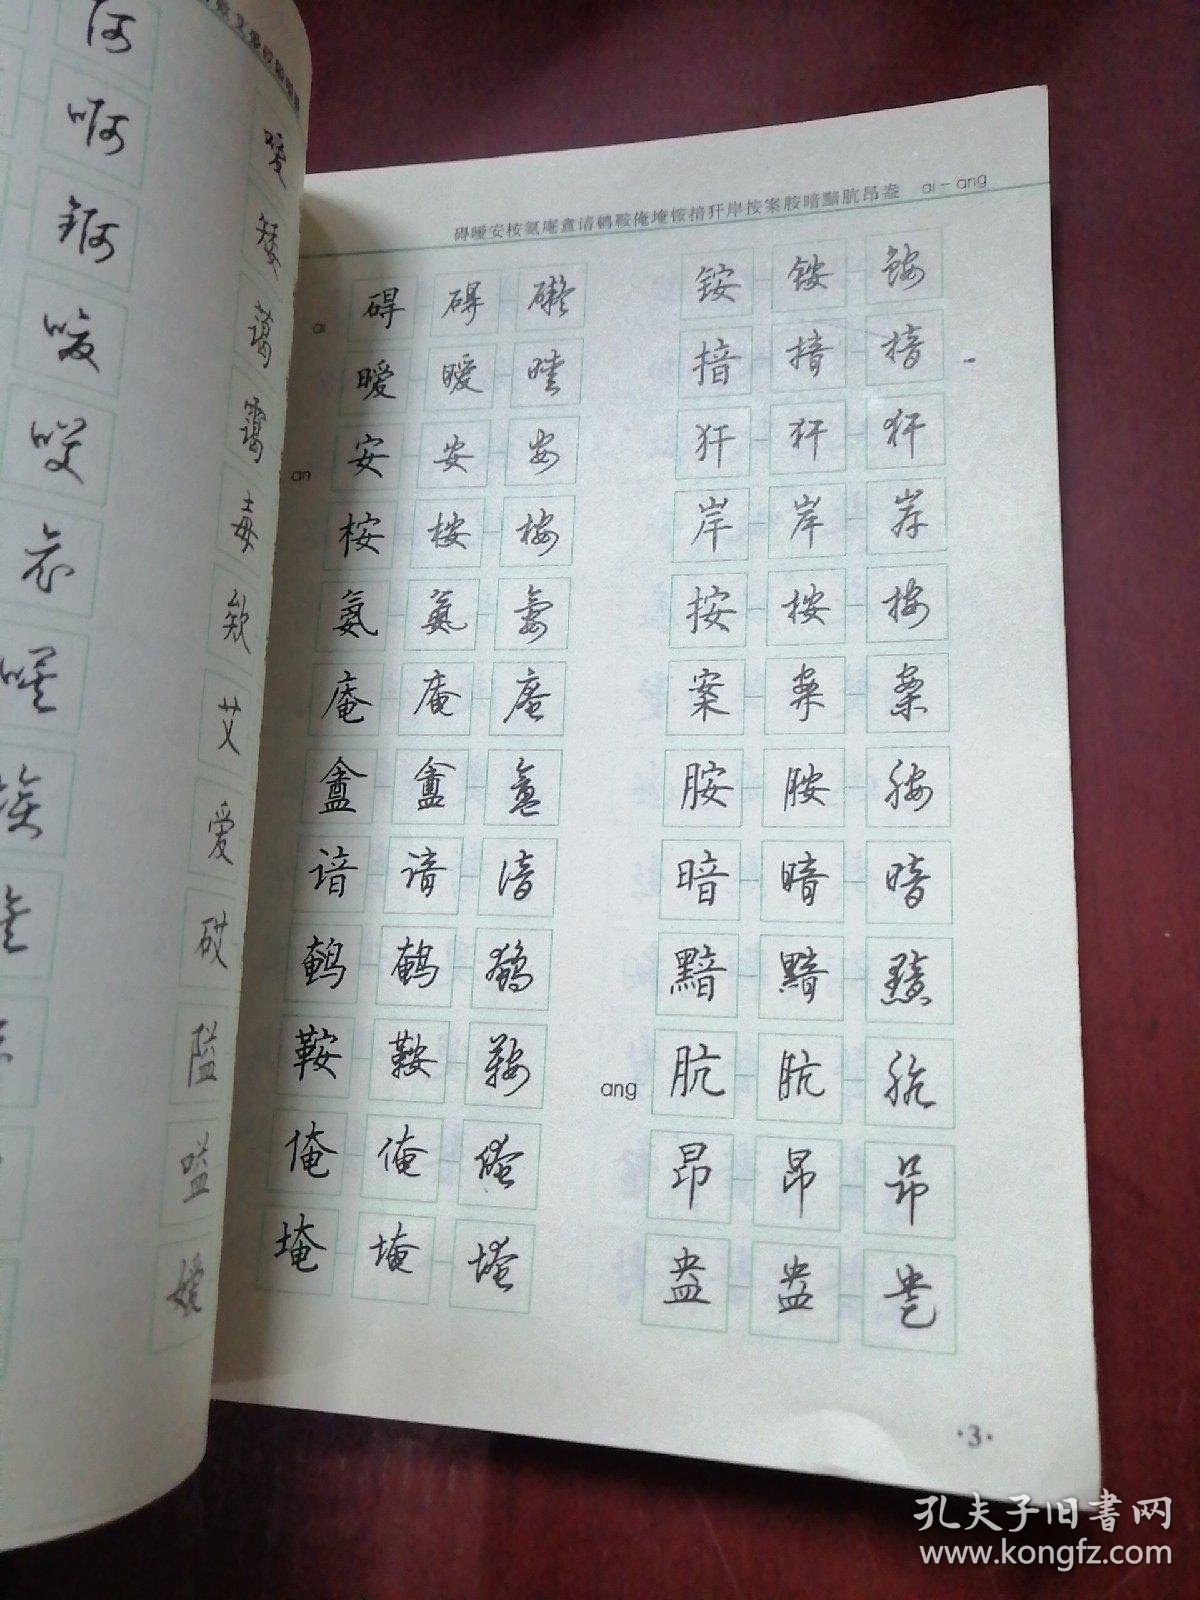 阿
啊
锕
嗳
哎
哀
唉
嗳
矮
蔼
霭
毐
欸
艾
爱
砹
隘
嗌
嫒
碍暧安桉氨庵盦谙鹌鞍俺埯铵揞犴岸按案胺暗黯肮昂盎 ai-ang
ai 碍 碍 礙
暧 暧 曖
an 安 安 安
桉 桉 桉
氨 氨 氨
庵 庵 庵
盦 盦 盦
谙 谙 谙
鹌 鹌 鹌
鞍 鞍 鞍
俺 俺 俺
埯 埯 埯
铵 铵 铵
揞 揞 揞
犴 犴 犴
岸 岸 岸
按 按 按
案 案 案
胺 胺 胺
暗 暗 暗
黯 黯 黯
ang 肮 肮 肮
昂 昂 昂
盎 盎 盎
·3·
孔夫子旧书网
www.kongfz.com